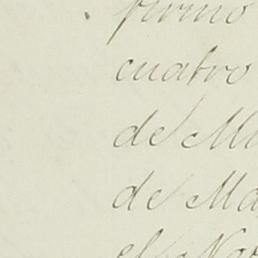 firmo
cuatro
de Mu
de Ma
el Nar